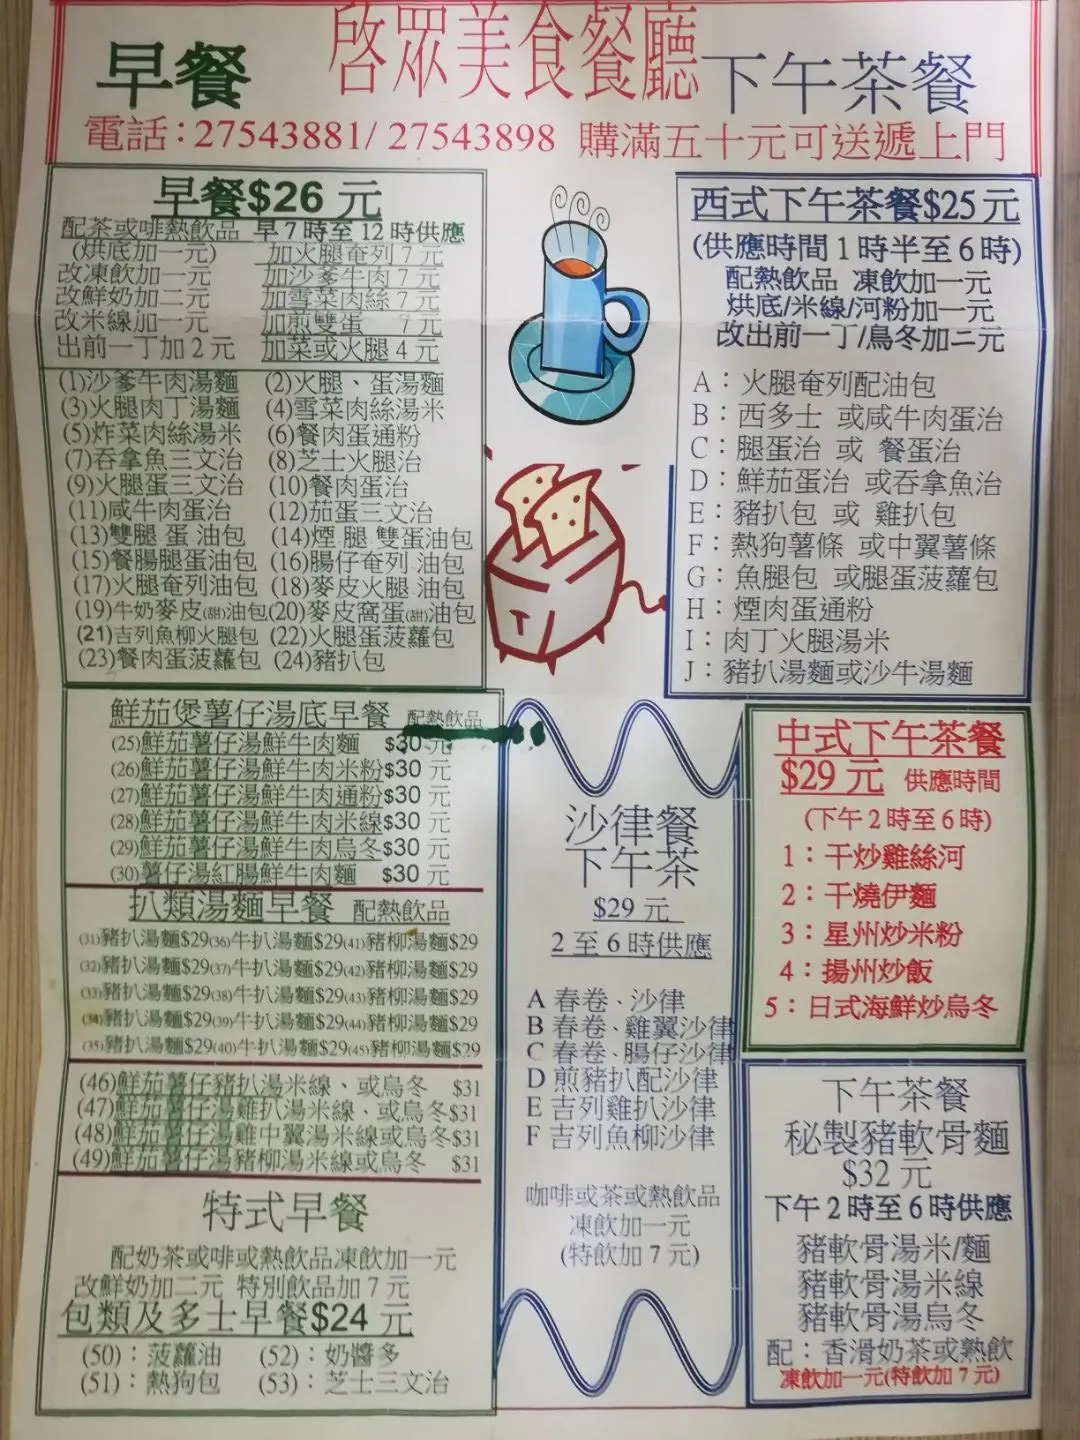 早餐
啓眾美食餐廳
下午茶餐
電話：27543881/ 27543898 購滿五十元可送遞上門
早餐$26 元
配茶或啡熱飲品 早7時至12時供應
(烘底加一元) 加火腿奄列7元
改凍飲加一元 加沙爹牛肉7元
改鮮奶加二元 加雪菜肉絲7元
改米線加一元 加煎雙蛋 7元
出前一丁加2元 加菜或火腿4元
(1)沙爹牛肉湯麵 (2)火腿、蛋湯麵
(3)火腿肉丁湯麵 (4)雪菜肉絲湯米
(5)炸菜肉絲湯米 (6)餐肉蛋通粉
(7)吞拿魚三文治 (8)芝士火腿治
(9)火腿蛋三文治 (10)餐肉蛋治
(11)咸牛肉蛋治 (12)茄蛋三文治
(13)雙腿 蛋 油包 (14)煙 腿 雙蛋油包
(15)餐腸腿蛋油包 (16)腸仔奄列 油包
(17)火腿奄列油包 (18)麥皮火腿 油包
(19)牛奶麥皮(甜)油包(20)麥皮窩蛋(甜)油包
(21)吉列魚柳火腿包 (22)火腿蛋菠蘿包
(23)餐肉蛋菠蘿包 (24)豬扒包
鮮茄煲薯仔湯底早餐 配熱飲品
(25)鮮茄薯仔湯鮮牛肉麵 $30元
(26)鮮茄薯仔湯鮮牛肉米粉$30 元
(27)鮮茄薯仔湯鮮牛肉通粉$30 元
(28)鮮茄薯仔湯鮮牛肉米線$30 元
(29)鮮茄薯仔湯鮮牛肉烏冬$30 元
(30)薯仔湯紅腸鮮牛肉麵 $30 元
扒類湯麵早餐 配熱飲品
(31)豬扒湯麵$29(36)牛扒湯麵$29(41)豬柳湯麵$29
(32)豬扒湯麵$29(37)牛扒湯麵$29(42)豬柳湯麵$29
(33)豬扒湯麵$29(38)牛扒湯麵$29(43)豬柳湯麵$29
(34)豬扒湯麵$29(39)牛扒湯麵$29(44)豬柳湯麵$29
(35)豬扒湯麵$29(40)牛扒湯麵$29(45)豬柳湯麵$29
(46)鮮茄薯仔豬扒湯米線、或烏冬 $31
(47)鮮茄薯仔湯雞扒湯米線、或烏冬$31
(48)鮮茄薯仔湯雞中翼湯米線或烏冬$31
(49)鮮茄薯仔湯豬柳湯米線或烏冬 $31
特式早餐
配奶茶或啡或熱飲品凍飲加一元
改鮮奶加二元 特別飲品加7元
包類及多士早餐$24 元
(50)：菠蘿油 (52)：奶醬多
(51)：熱狗包 (53)：芝士三文治
沙律餐
下午茶
$29 元
2至6時供應
A 春卷、沙律
B 春卷、雞翼沙律
C 春卷、腸仔沙律
D 煎豬扒配沙律
E 吉列雞扒沙律
F 吉列魚柳沙律
咖啡或茶或熱飲品
凍飲加一元
(特飲加7元)
西式下午茶餐$25元
(供應時間1時半至6時)
配熱飲品 凍飲加一元
烘底/米線/河粉加一元
改出前一丁/烏冬加二元
A：火腿奄列配油包
B：西多士 或咸牛肉蛋治
C：腿蛋治 或 餐蛋治
D：鮮茄蛋治 或吞拿魚治
E：豬扒包 或 雞扒包
F：熱狗薯條 或中翼薯條
G：魚腿包 或腿蛋菠蘿包
H：煙肉蛋通粉
I：肉丁火腿湯米
J：豬扒湯麵或沙牛湯麵
中式下午茶餐
$29 元 供應時間
(下午2時至6時)
1：干炒雞絲河
2：干燒伊麵
3：星州炒米粉
4：揚州炒飯
5：日式海鮮炒烏冬
下午茶餐
秘製豬軟骨麵
$32 元
下午2時至6時供應
豬軟骨湯米/麵
豬軟骨湯米線
豬軟骨湯烏冬
配：香滑奶茶或熟飲
凍飲加一元(特飲加7元)